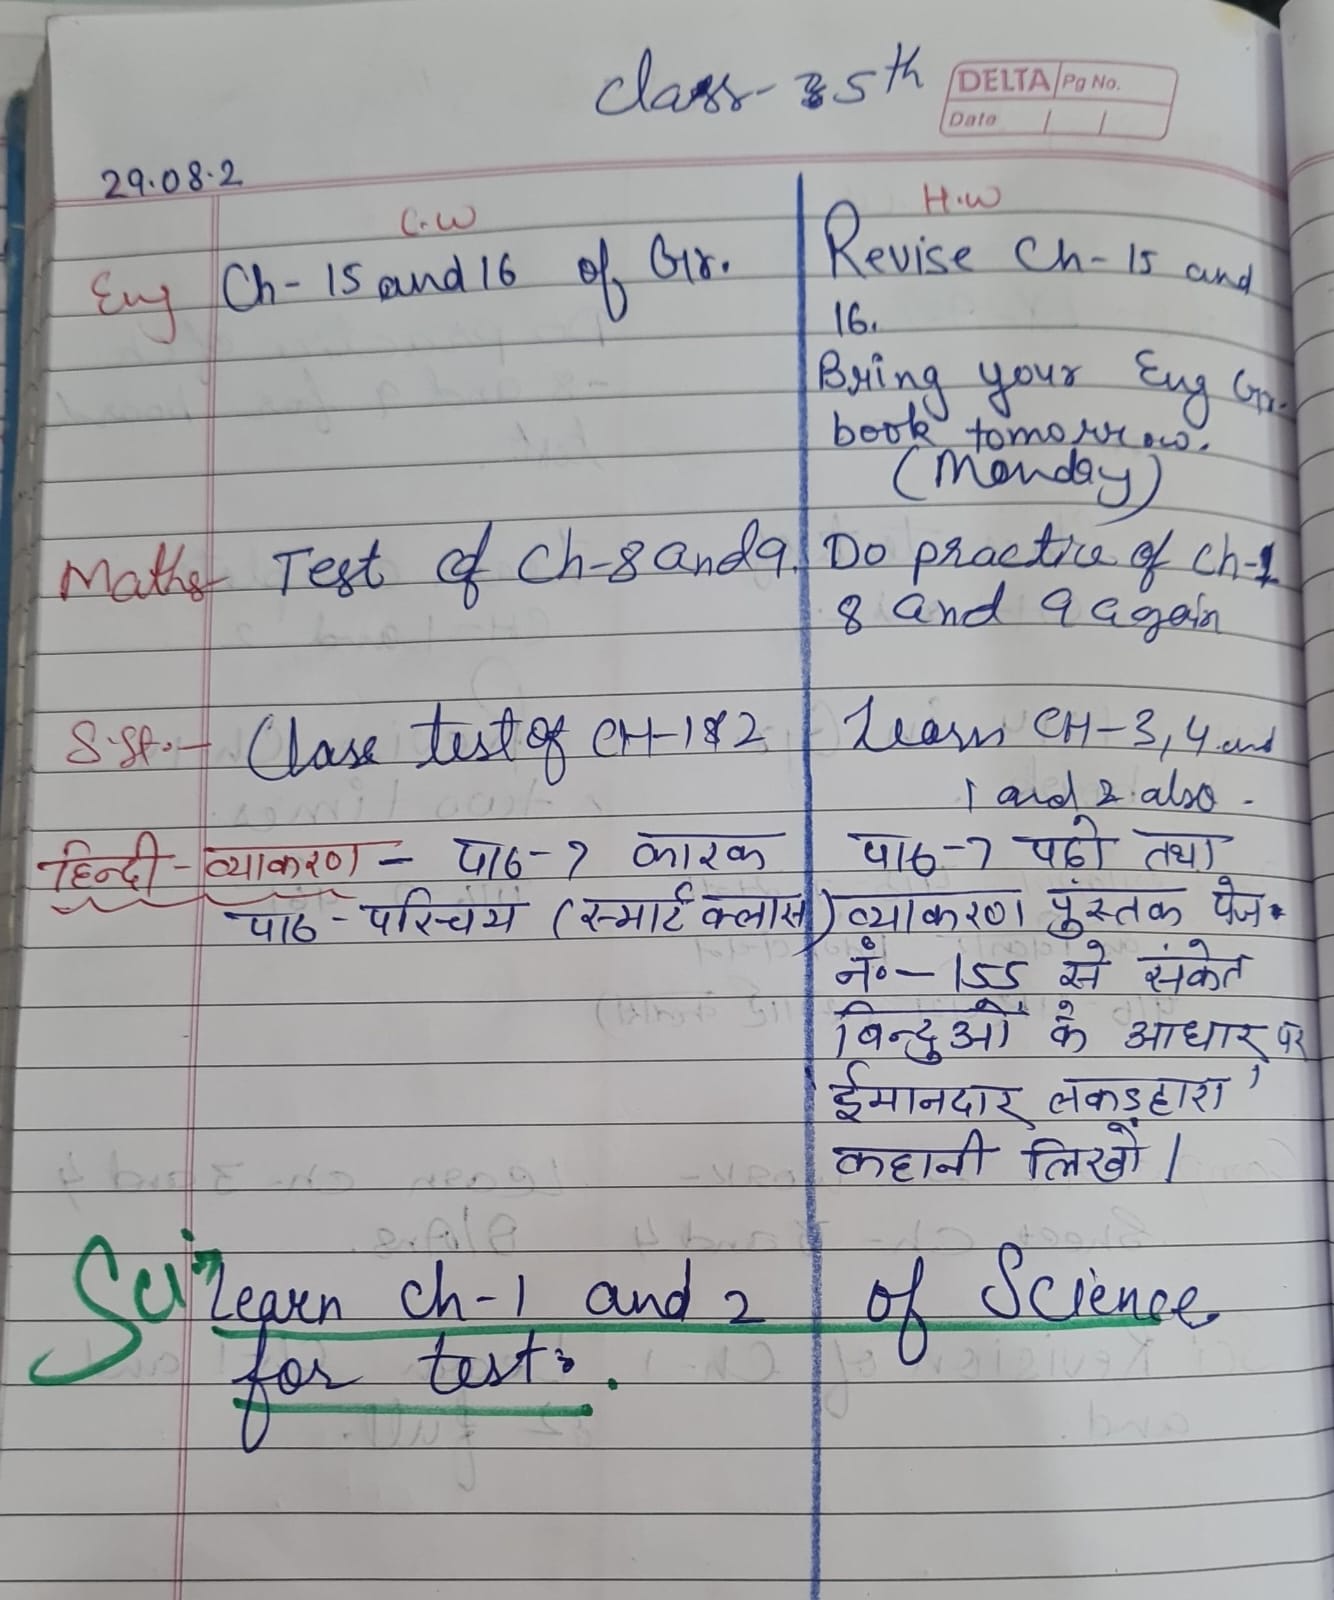 Class- 5th
DELTA Pg No.
Date
29.08.2
C.W H.W
Eng Ch- 15 and 16 of Gr. Revise Ch- 15 and
16.
Bring your Eng Gr.
book tomorrow.
(Monday)
Maths Test of Ch-8 and 9. Do practice of Ch-
8 and 9 again
S.St.- Class test of CH-1&2 Learn CH-3, 4 and
1 and 2 also.
हिन्दी - व्याकरण - पाठ-7 कारक पाठ-7 पढो तथा
पाठ - परिचय (स्मार्ट क्लास) व्याकरण पुस्तक पेज
नं०- 155 से संकेत
बिन्दुओं के आधार पर
ईमानदार लकडहारा'
कहानी लिखों।
Sci Learn ch-1 and 2 of Science
for test.